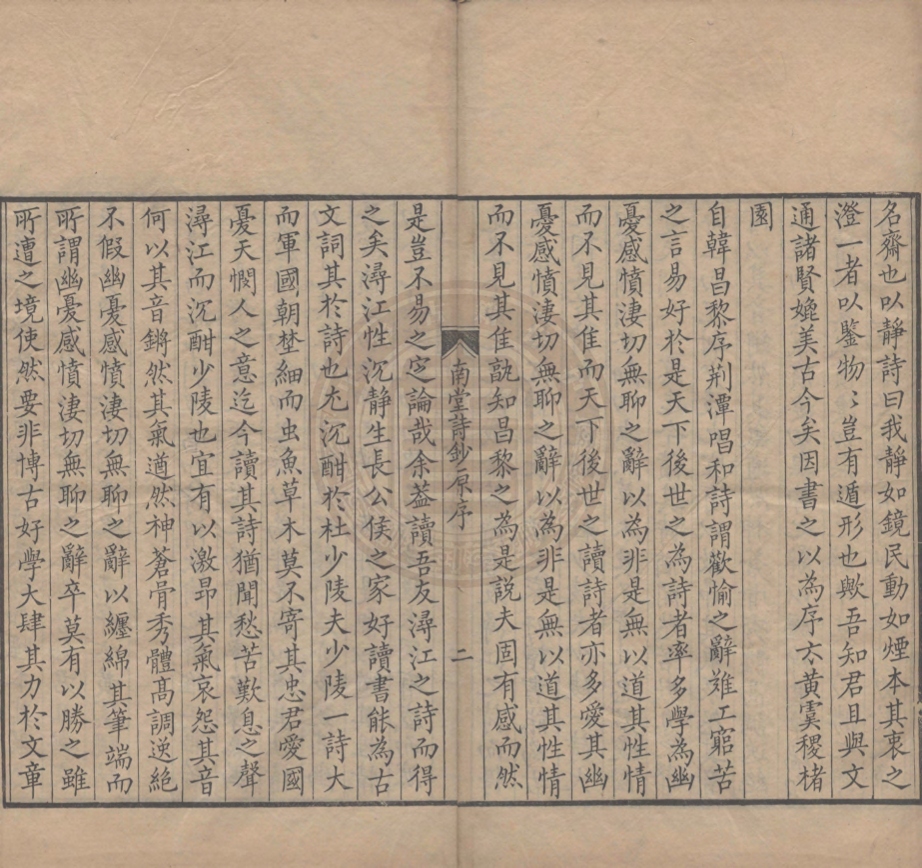 名齋也以靜詩曰我靜如鏡民動如煙本其衷之
澄一者以鑒物〻豈有遁形也歟吾知君且與文
通諸賢媲美古今矣因書之以為序太黃虞稷楮
園
自韓昌黎序荆潭唱和詩謂歡愉之辭難工窮苦
之言易好於是天下後世之為詩者率多學為幽
憂感憤淒切無聊之辭以為非是無以道其性情
而不見其佳而天下後世之讀詩者亦多愛其幽
憂感憤淒切無聊之辭以為非是無以道其性情
而不見其佳孰知昌黎之為是説夫固有感而然
南堂詩鈔原序
二
是豈不易之定論哉余葢讀吾友潯江之詩而得
之矣潯江性沉靜生長公侯之家好讀書能為古
文詞其於詩也尤沉酣於杜少陵夫少陵一詩大
而軍國朝埜細而虫魚草木莫不寄其忠君愛國
憂天憫人之意迄今讀其詩猶聞愁苦歎息之聲
潯江而沉酣少陵也宜有以激昂其氣哀怨其音
何以其音鏘然其氣遒然神蒼骨秀體髙調逸絕
不假幽憂感憤淒切無聊之辭以纏綿其筆端而
所謂幽憂感憤淒切無聊之辭卒莫有以勝之雖
所遭之境使然要非博古好學大肆其力於文章